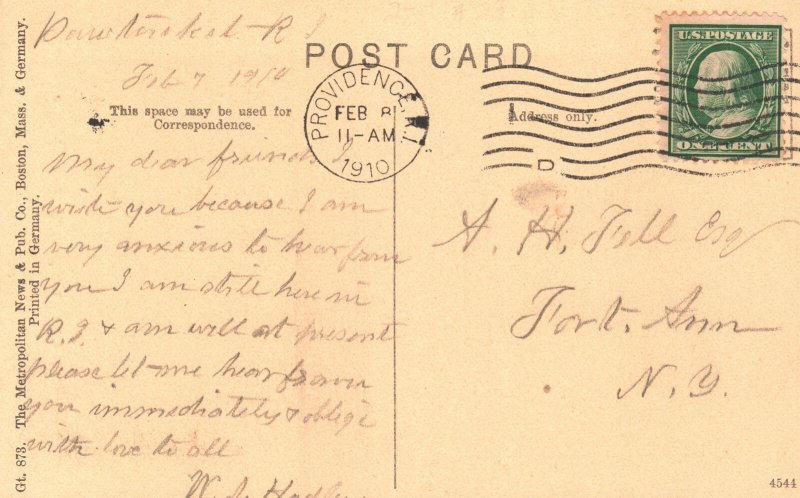 Pawtucket R I
Feb 7 1910
POST CARD
This space may be used for
Correspondence.
Address only.
PROVIDENCE, R.I.
FEB 8
11-AM
1910
D
U.S. POSTAGE
ONE CENT
My dear friends I
write you because I am
very anxious to hear from
you I am still here in
R.I. & am well at present
please let me hear from
you immediately & oblige
with love to all
W.
A. H. Fell Esq
Fort. Ann
N.Y.
Gt. 873. The Metropolitan News & Pub. Co., Boston, Mass. & Germany.
Printed in Germany.
4544